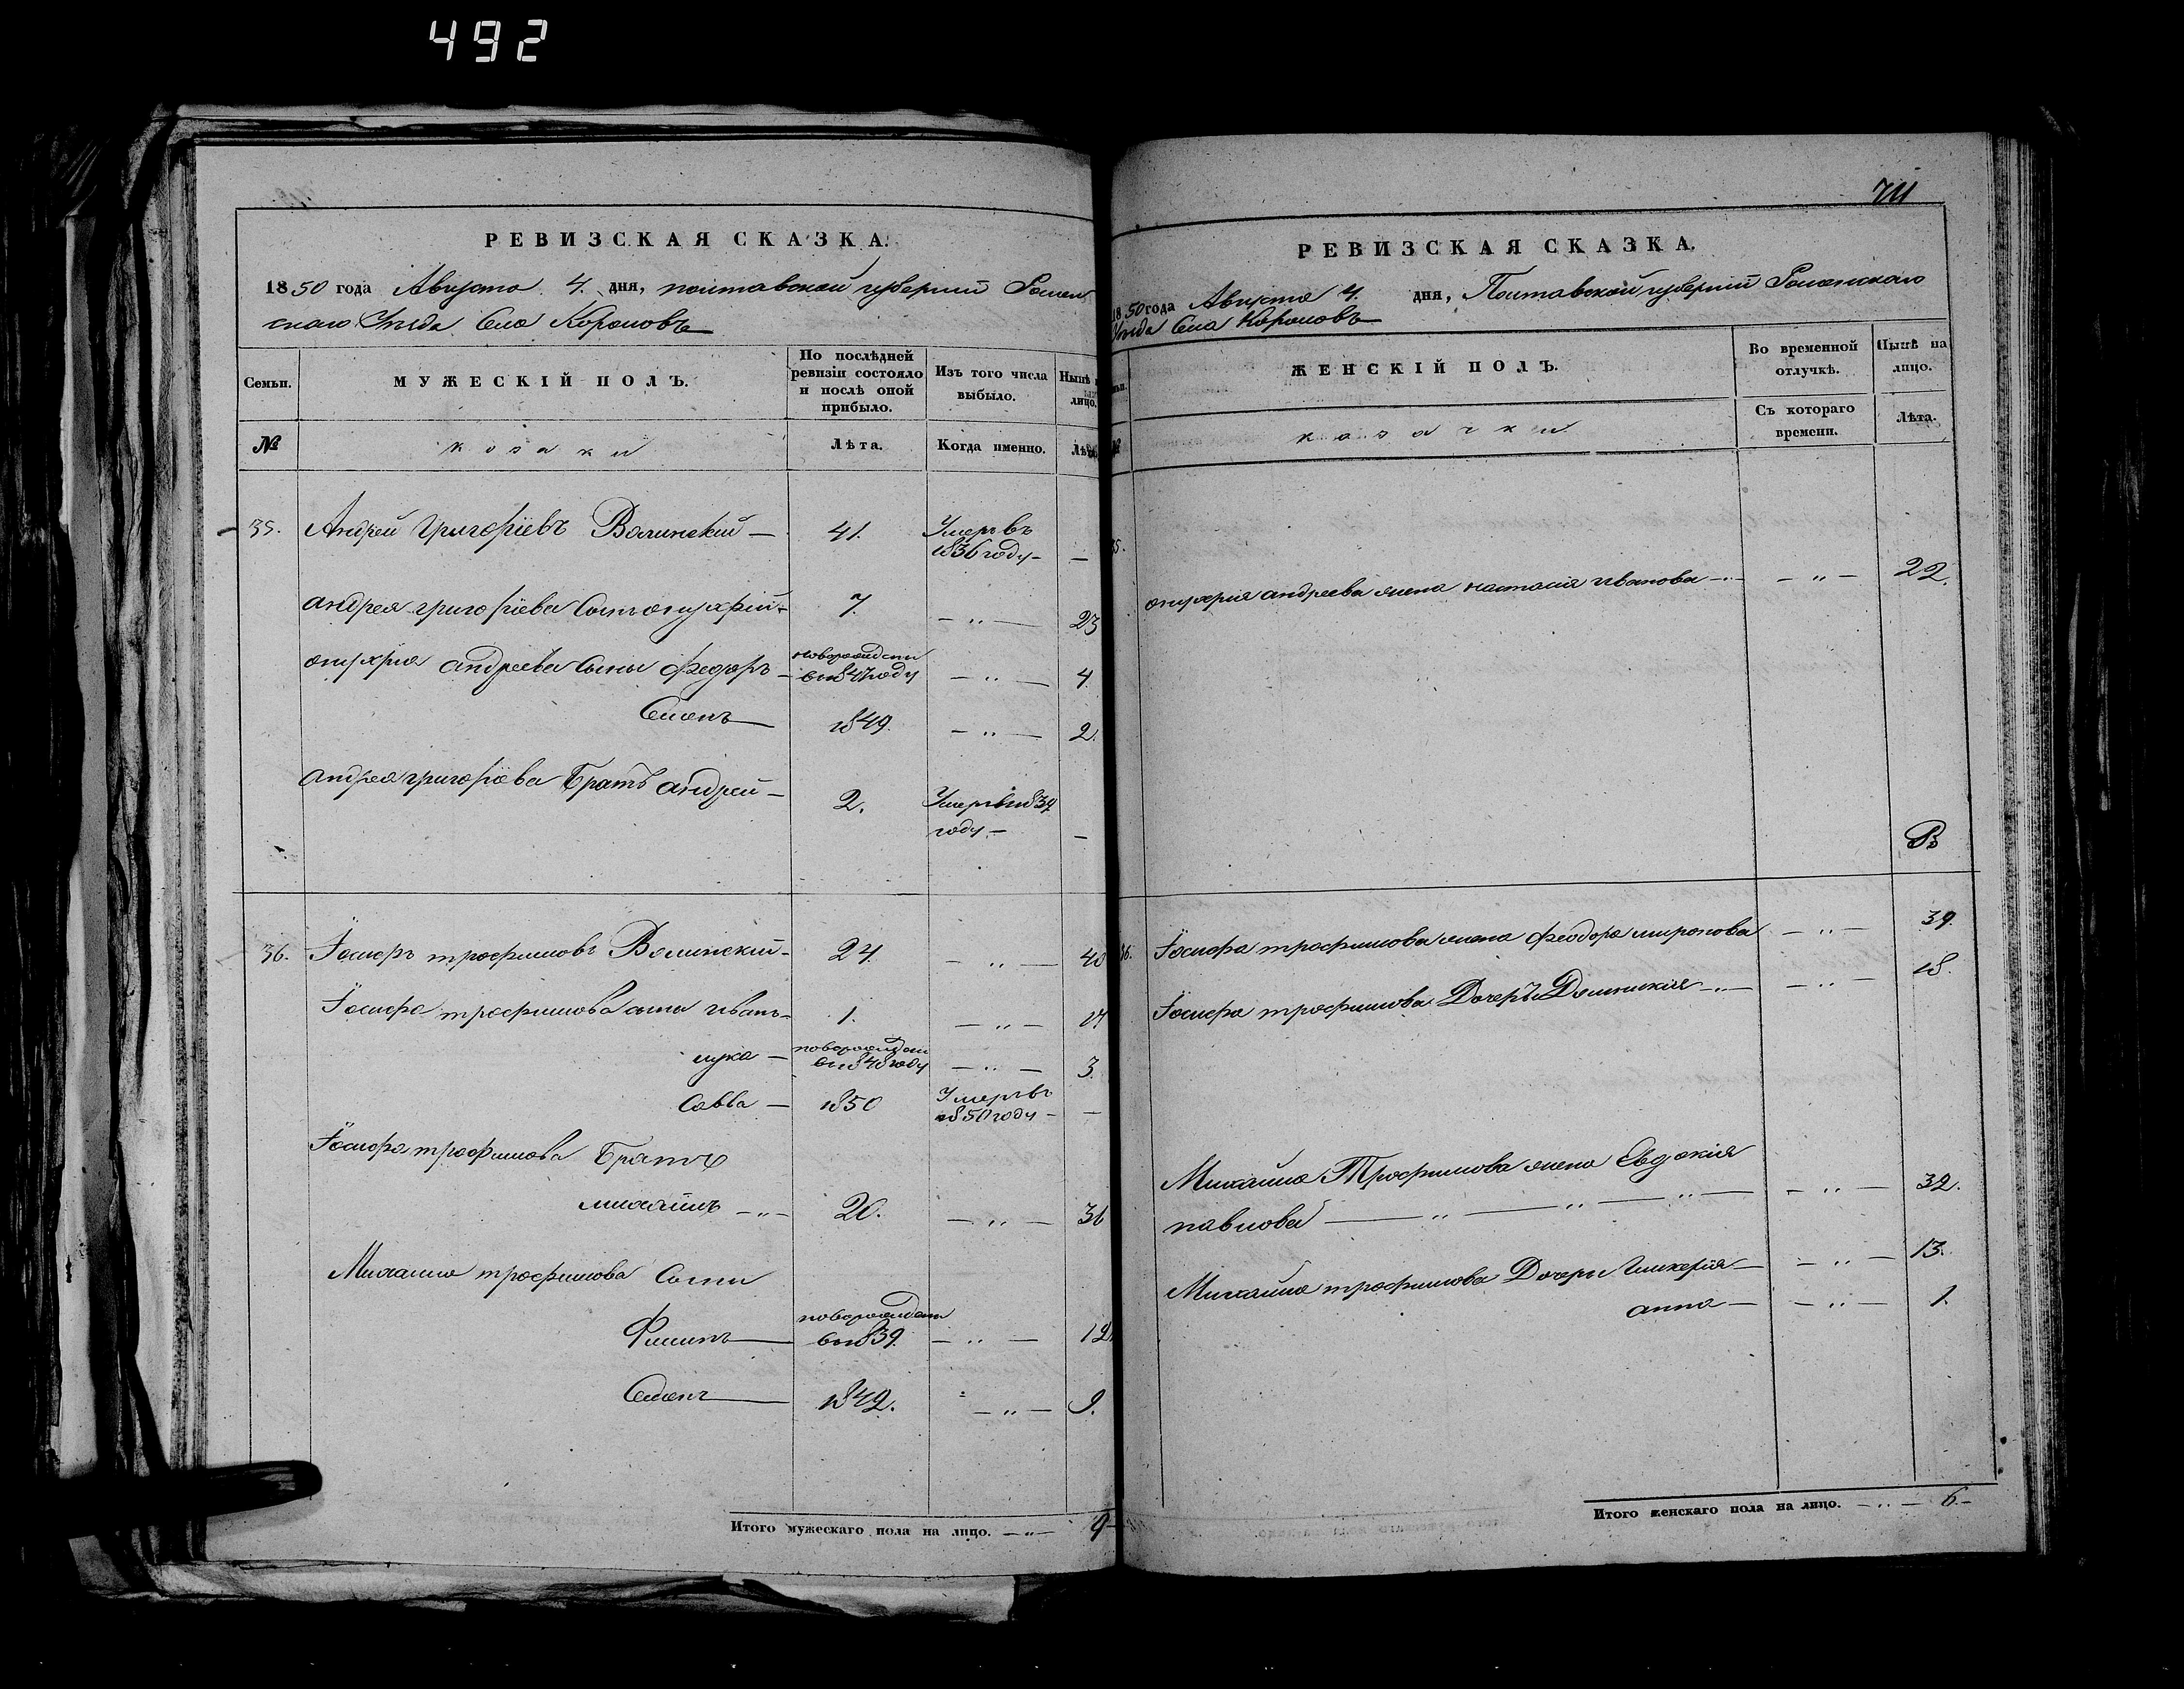 492
РЕВИЗСКАЯ СКАЗКА.
1850 года Августа 4. дня, полтавской губернiи Ромен
скаго Уѣзда Села Корововъ
Семьи.
МУЖЕСКІЙ ПОЛЪ.
По послѣдней ревизіи состояло и послѣ оной прибыло.
Изъ того числа выбыло.
Нынѣ на лицо.
№
козаки
Лѣта.
Когда именно.
Лѣта
35. Андрей Григорiевъ Волинскiй — 41. Умеръ въ
1836 году — —
андрея григорiева Сынъ онуфрiй — 7. — „ — 23
онуфрiя андреева Сыны федоръ — новорожден
въ 1847 году — „ — 4
Семенъ — 1849. — „ — 2.
андрея григорiева Братъ андрей — 2. Умеръ въ 1839
году — —
36. Iосифъ трофимовъ Волинскiй — 24 — „ — 40
Iосифа трофимова сыны иванъ — 1. — „ — 17
лука — новорожден
въ 1848 году — „ — 3.
Савва — 1850 Умеръ въ
1850 году — —
Iосифа трофимова Братъ
михаилъ — „ — 20. — „ — 36
Михаила трофимова Сыны
Филипъ — новорожден
въ 1839. — „ — 12
Семенъ — 1842. — „ — 9.
Итого мужескаго пола на лицо. — „ — 9 —
711
РЕВИЗСКАЯ СКАЗКА.
1850 года Августа 4. дня, Полтавской губернiи Роменскаго
Уѣзда Села Корововъ
ЖЕНСКІЙ ПОЛЪ.
Во временной отлучкѣ.
Нынѣ на лицо.
№
казачки
Съ котораго времени.
Лѣта.
35.
онуфрiя андреева жена настасiя иванова — „ — — „ — 22.
36. Iосифа трофимова жена феодора миронова — „ — 39.
Iосифа трофимова Дочеръ Домникiя — „ — — „ — 18.
Михаила Трофимова жена Евдокiя
павлова — „ — „ — — „ — 32.
Михаила трофимова Дочери Гликерiя — — „ — 13.
анна — — „ — 1.
Итого женскаго пола на лицо. — „ — 6 —